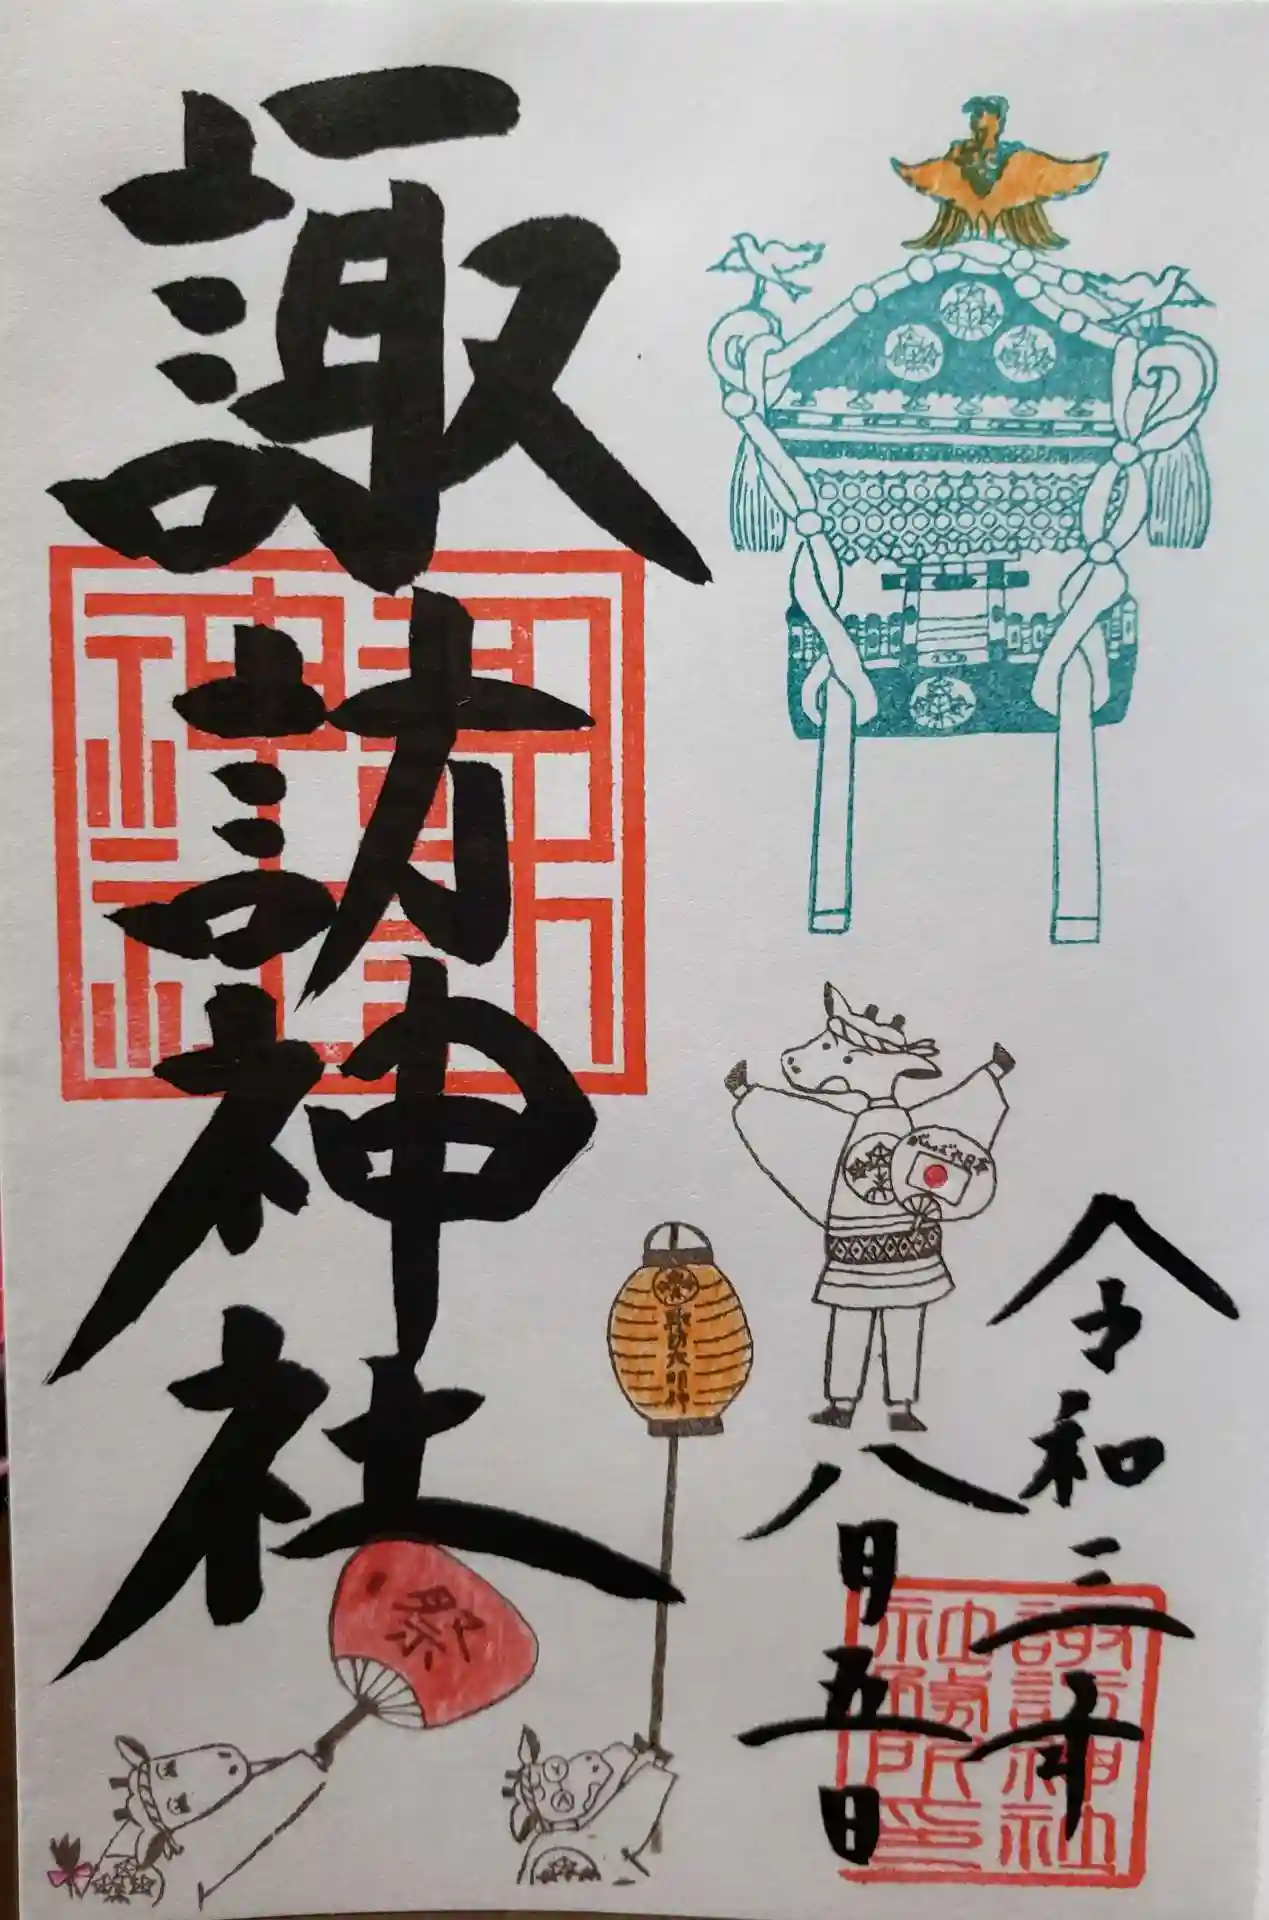 諏訪神社
がんばろう日本
諏訪大明神
祭
令和三年
八月五日
諏訪神社
諏訪神社
社務所印